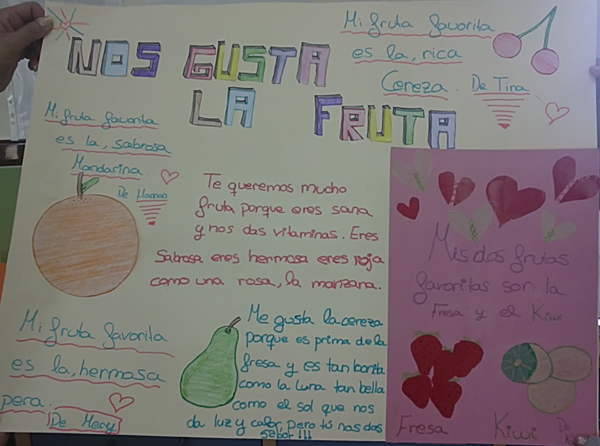 NOS GUSTA
LA FRUTA
Mi fruta favorita
es la, rica
Cereza. De Tina
Mi fruta favorita
es la, sabrosa
Mandarina.
De
Te queremos mucho
fruta porque eres sana
y nos das vitaminas. Eres
Sabrosa eres hermosa eres roja
como una rosa, la manzana.
Mis dos frutas
favoritas son la
Fresa y el Kiwi
Mi fruta favorita
es la, hermosa
pera.
De Mery
Me gusta la cereza
porque es prima de la
fresa y es tan bonita
como la Luna tan bella
como el sol que nos
da luz y calor, pero tú nos das
sabor!!!
Fresa
Kiwi
De